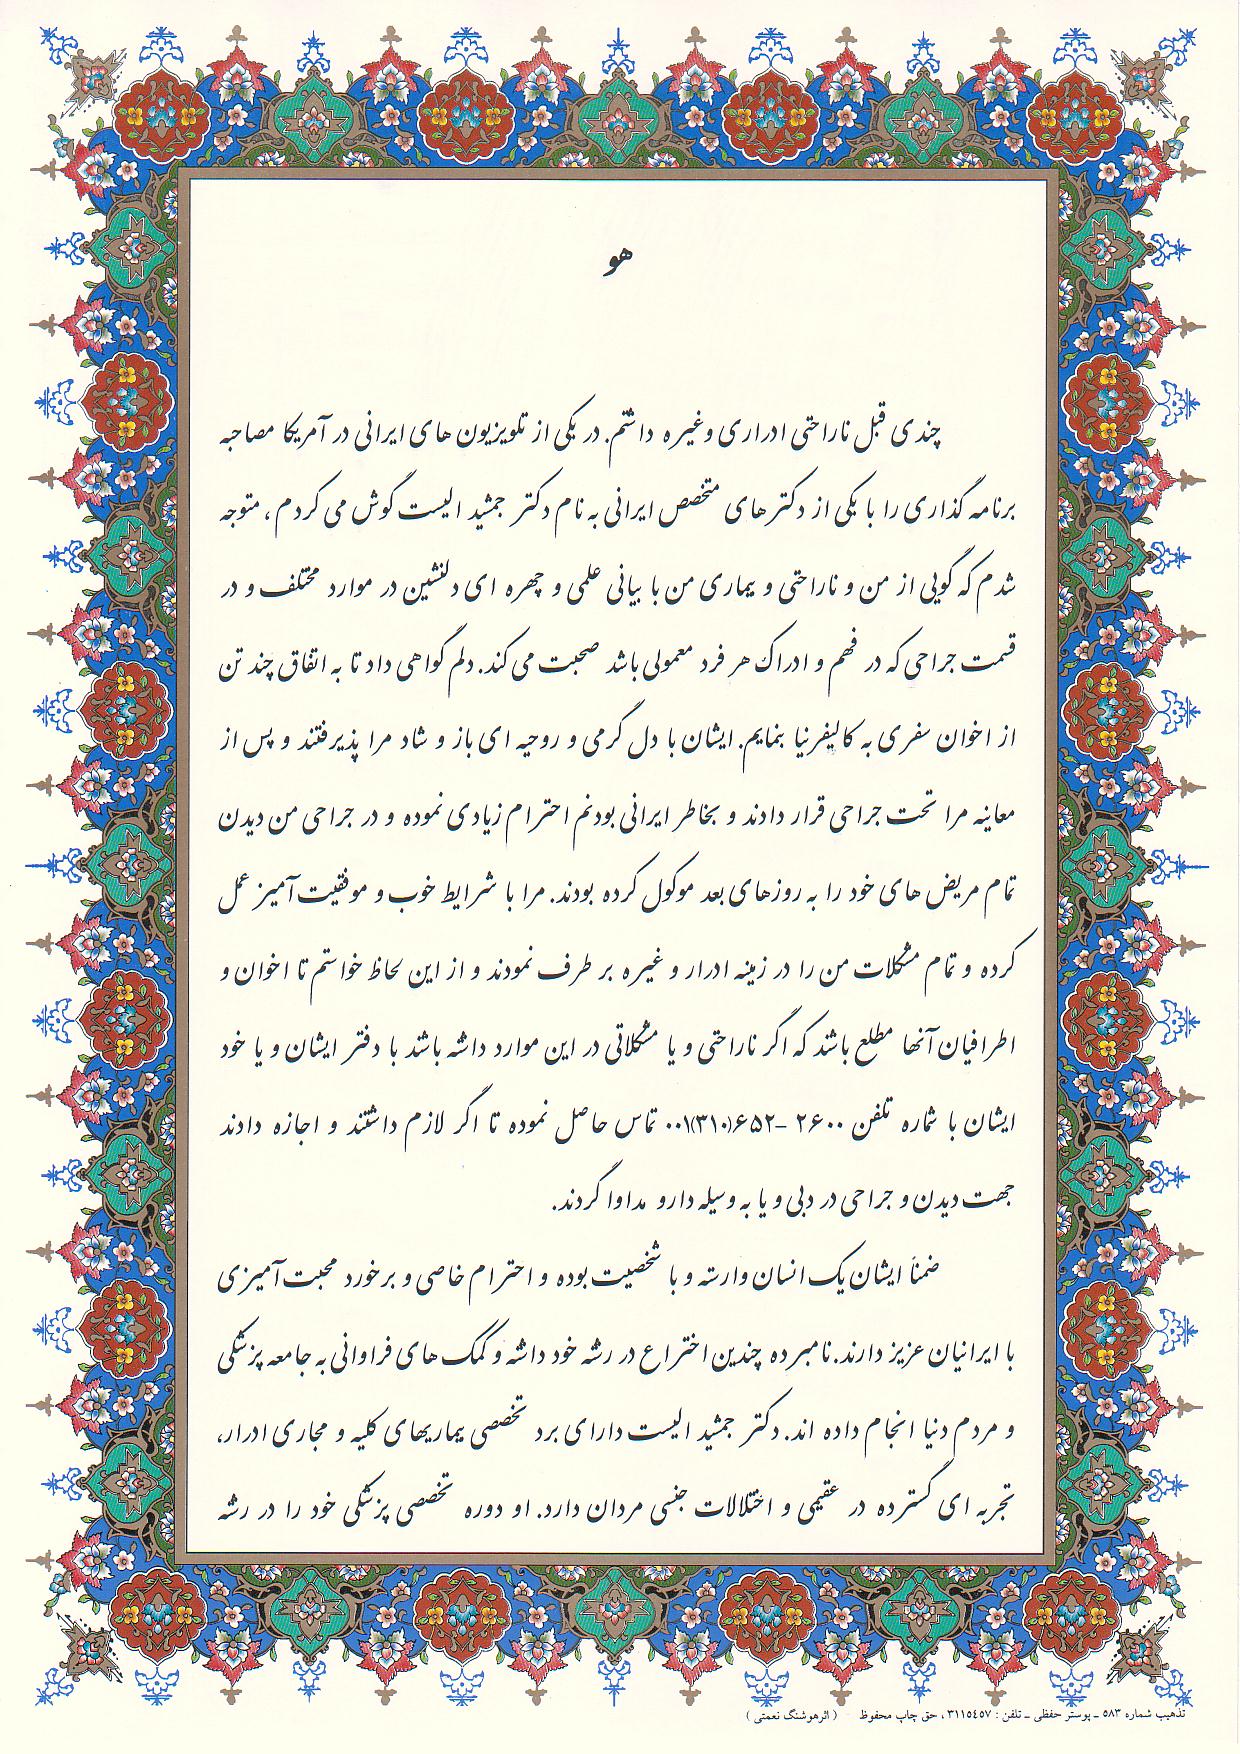 هو
چندی قبل ناراحتی ادراری وغیره داشتم. در یکی از تلویزیون های ایرانی در آمریکا مصاحبه
برنامه گذاری را با یکی از دکترهای متخصص ایرانی به نام دکتر جمشید الیست گوش می کردم، متوجه
شدم که گویی از من و ناراحتی و بیماری من با بیانی علمی و چهره ای دلنشین در موارد مختلف و در
قسمت جراحی که در فهم و ادراک هر فرد معمولی باشد صحبت می کند. دلم گواهی داد تا به اتفاق چند تن
از اخوان سفری به کالیفرنیا بنمایم. ایشان با دل گرمی و روحیه ای باز و شاد مرا پذیرفتند و پس از
معاینه مرا تحت جراحی قرار دادند و بخاطر ایرانی بودنم احترام زیادی نموده و در جراحی من دیدن
تمام مریض های خود را به روزهای بعد موکول کرده بودند. مرا با شرایط خوب و موفقیت آمیز عمل
کرده و تمام مشکلات من را در زمینه ادرار و غیره بر طرف نمودند و از این لحاظ خواستم تا اخوان و
اطرافیان آنها مطلع باشند که اگر ناراحتی و یا مشکلاتی در این موارد داشته باشند با دفتر ایشان و یا خود
ایشان با شماره تلفن ۲۶۰۰ -۶۵۲(۳۱۰)۰۰۱ تماس حاصل نموده تا اگر لازم داشتند و اجازه دادند
جهت دیدن و جراحی در دبی و یا به وسیله دارو مداوا گردند.
ضمناً ایشان یک انسان وارسته و با شخصیت بوده و احترام خاصی و برخورد محبت آمیزی
با ایرانیان عزیز دارند. نامبرده چندین اختراع در رشته خود داشته و کمک های فراوانی به جامعه پزشکی
و مردم دنیا انجام داده اند. دکتر جمشید الیست دارای برد تخصصی بیماریهای کلیه و مجاری ادرار،
تجربه ای گسترده در عقیمی و اختلالات جنسی مردان دارد. او دوره تخصصی پزشکی خود را در رشته
تذهیب شماره ۵۸۳ ـ پوستر حفظی ـ تلفن : ۳۱۱۵۴۵۷ ، حق چاپ محفوظ ( اثرهوشنگ نعمتی )